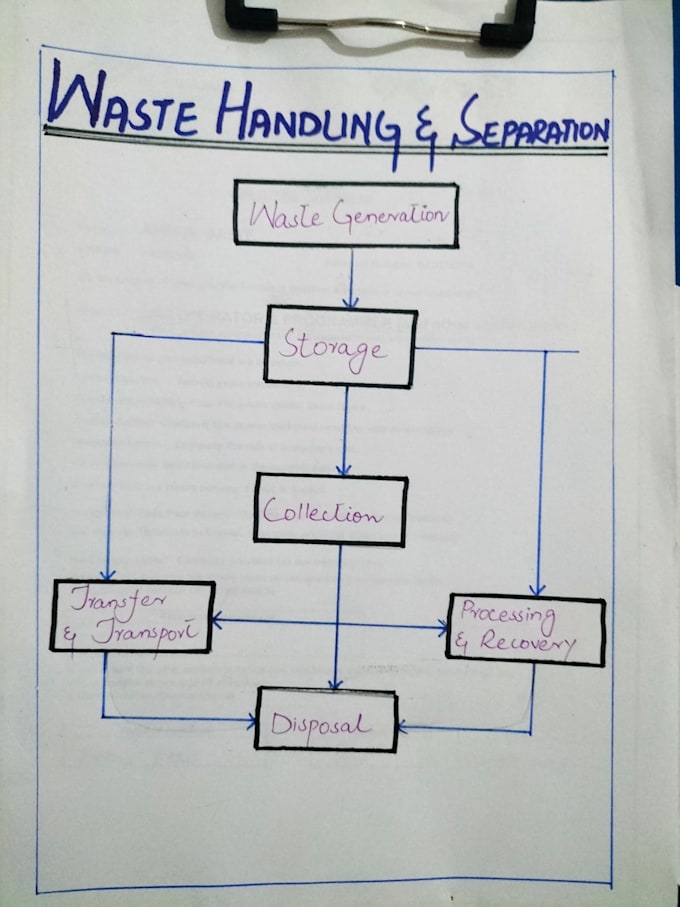 WASTE HANDLING & SEPARATION
Waste Generation
Storage
Collection
Transfer
& Transport
Processing
& Recovery
Disposal